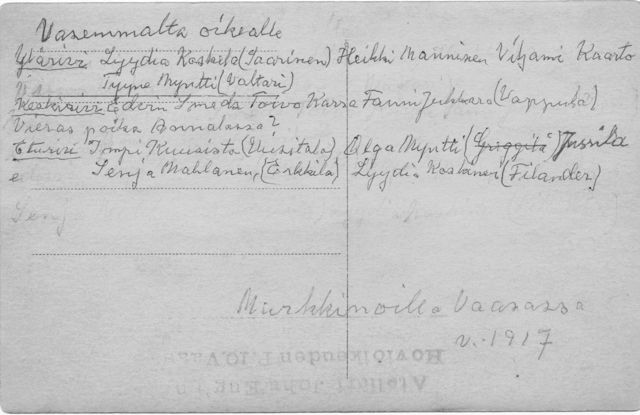 Vasemmalta oikealle
Ylärivi Lyydia Koskela (Saarinen) Heikki Manninen Viljami Kaarto
Tyyne Myntti (Valtari)
Keskirivi Edvin Smeds Toivo Karra Fanni Jukkara (Vappula)
Vieras poika Annalassa?
Eturivi Impi Kuusisto (Ykisitalo) Olga Myntti (Griggitä) Jussila
Senja Mahlanen, (Erkkilä) Lyydia Koskinen (Filander)
Senj
Markkinoilla Vaasassa
v. 1917
Hovioikeudenp. 10, Vaasa
Atelier John Eng